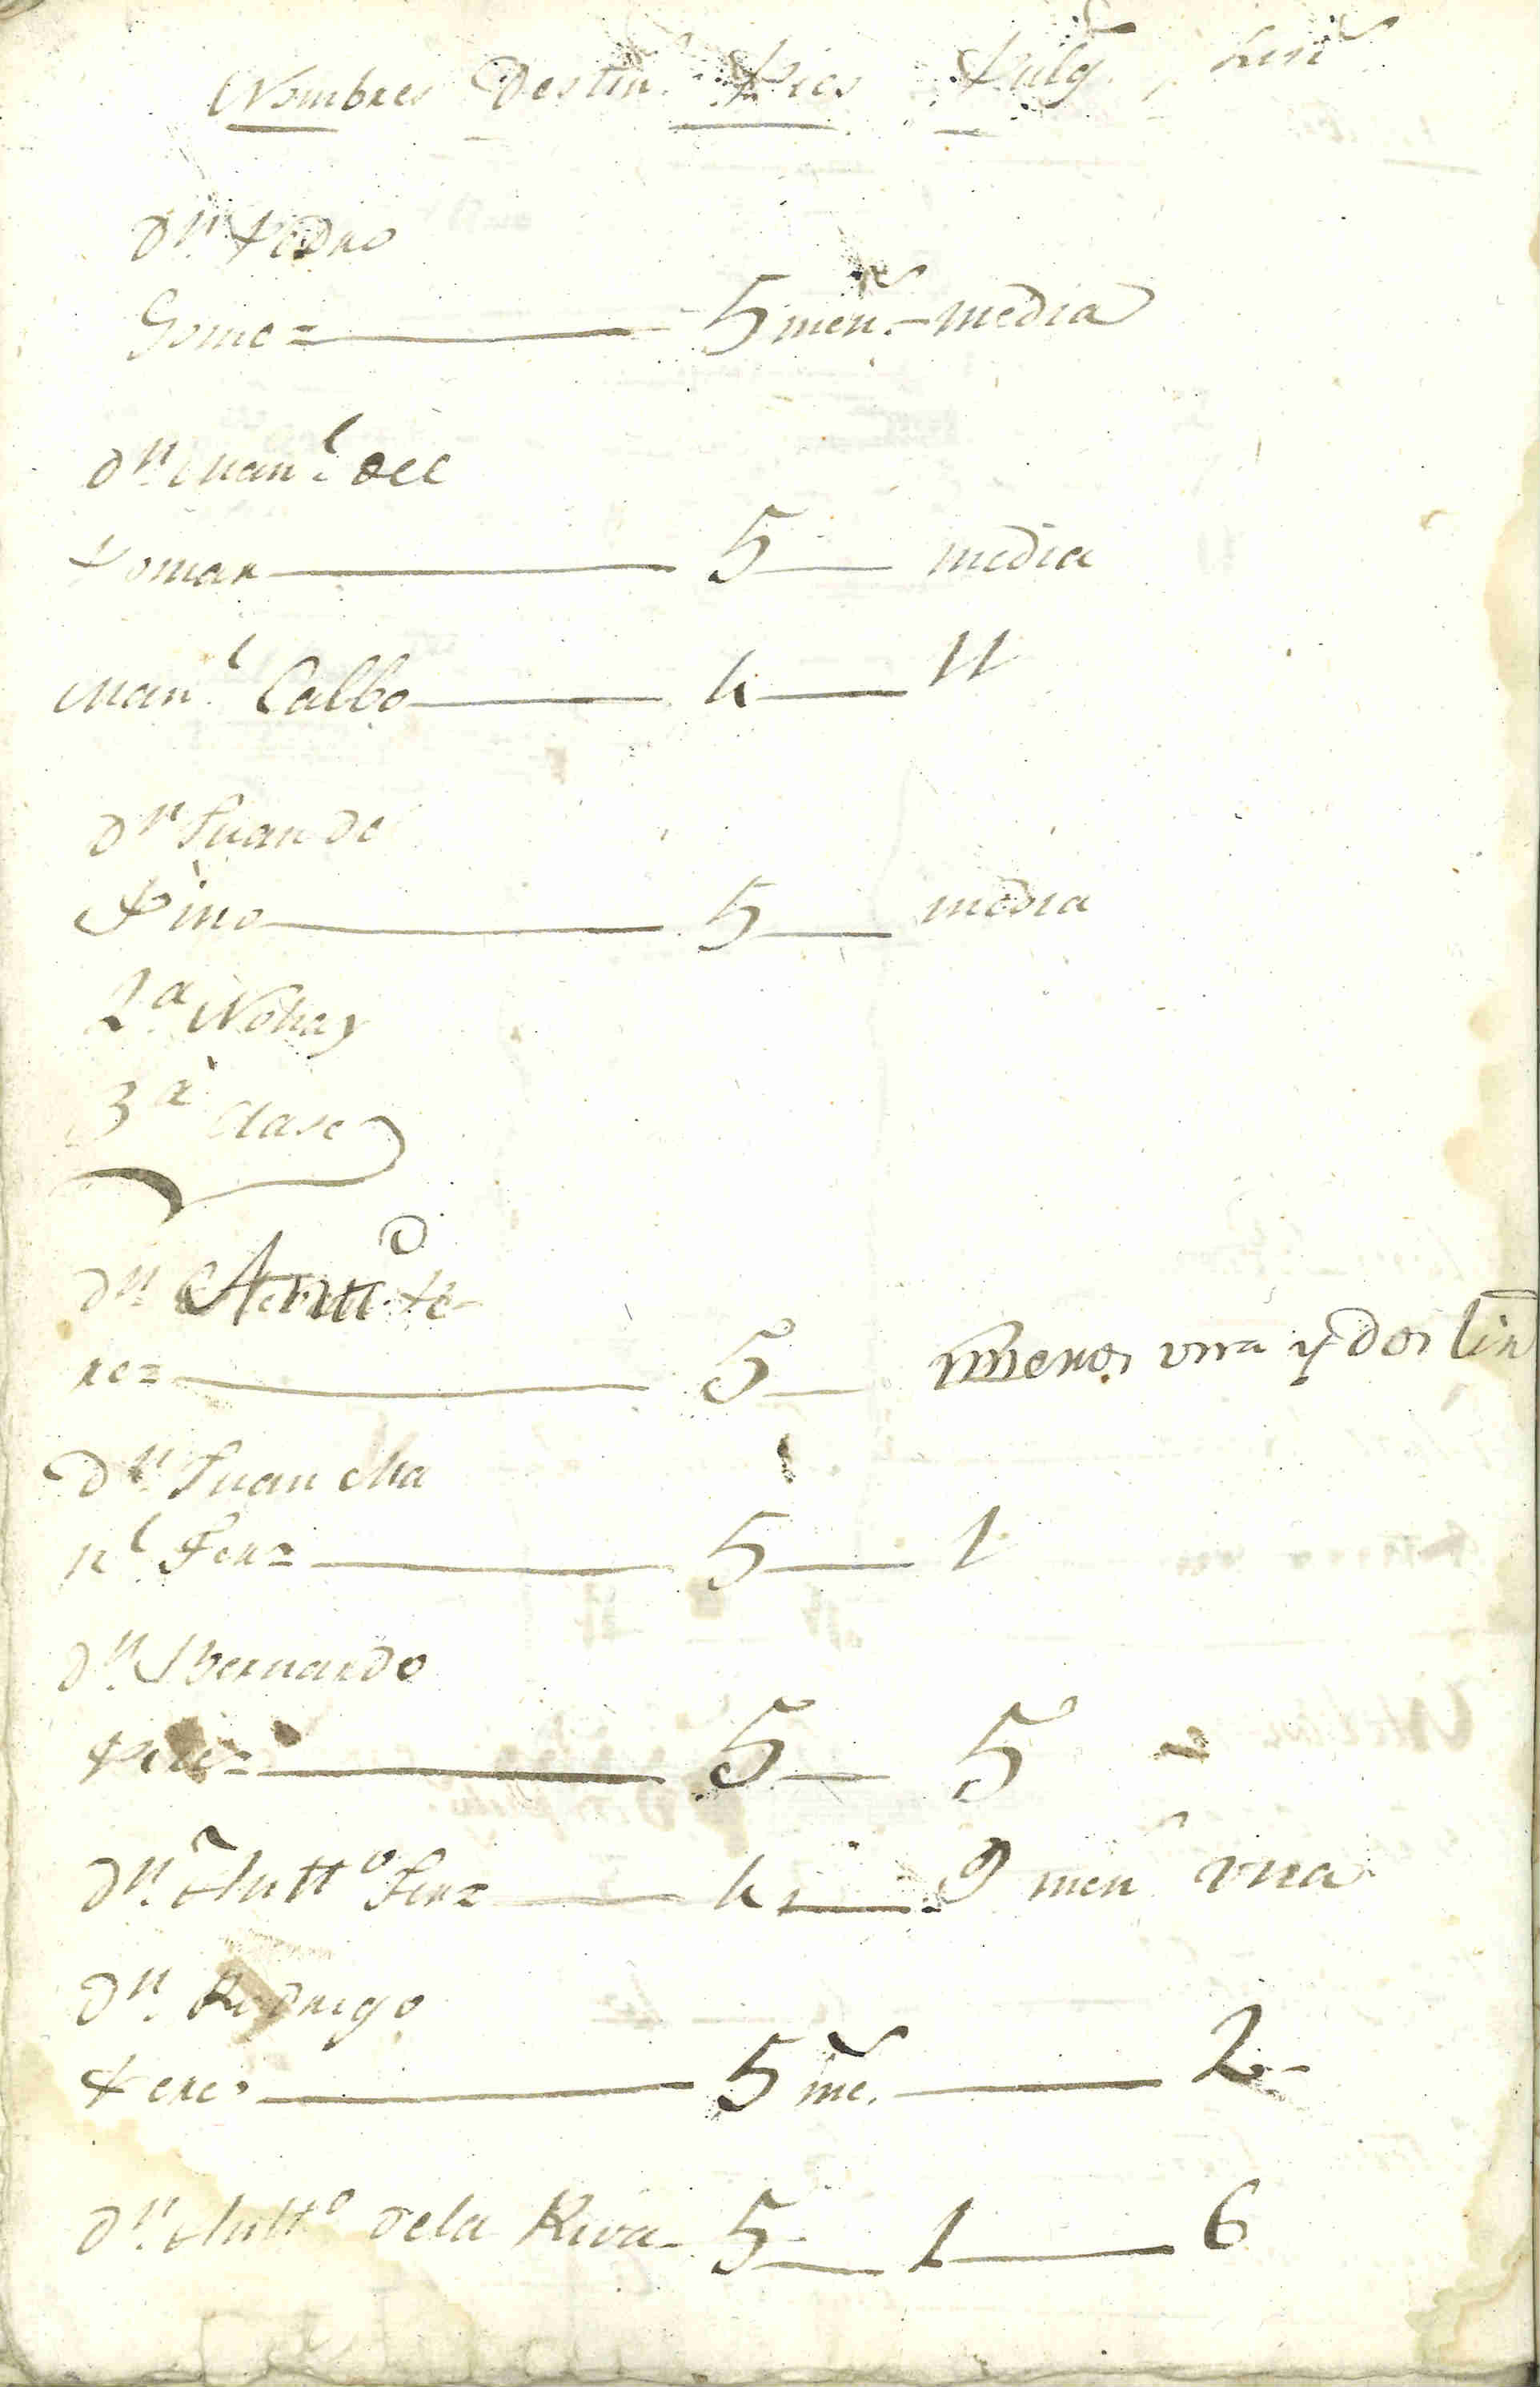 Nombres Destin.s Pies Pulg.s Lin.s
Dn. Pedro
Gomez 5 men.s media
Dn. Man.l del
Pomar 5 media
Man.l Calbo 4 11
Dn. Juan de
Pino 5 media
2.a No hay
3.a Clase
Dn. Antt.o Pe-
rez 5 menos una y dos lin
Dn. Juan Ma
nl Ferz 5 1
Dn. Bernardo
Perez 5 5
Dn. Antto Ferz 4 9 men.s una
Dn. Rodrigo
Peres 5 me.s 2
Dn. Antto de la Riva 5 1 6